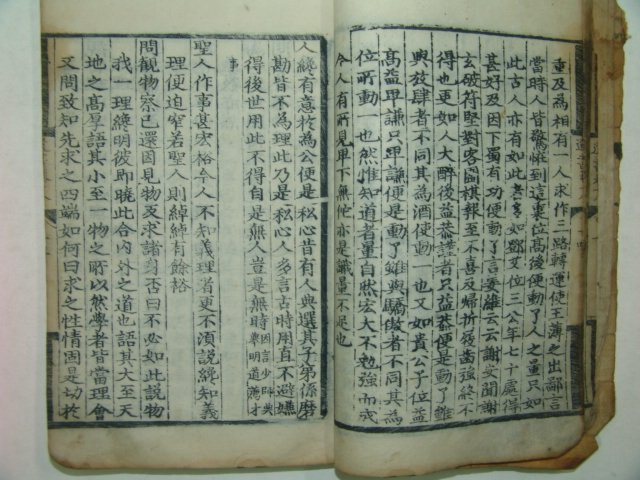 重及為相有一人求作三路轉運使王薄之出鄙言
當時人皆驚怪到這裏位高後便動了人之量只如
此古人亦有如此者多如鄧艾位三公年七十處得
甚好及因下蜀有功便動了言姜維云云謝安聞謝
玄破符堅對客圍棋報至不喜及歸折屐齒强終不
得也更如人大醉後益恭謹者只益恭便是動了雖
與放肆者不同其為酒所動一也又如貴公子位益
高益卑謙只卑謙便是動了雖與驕傲者不同其為
位所動一也然惟知道者量自然宏大不勉強而成
今人有所見卑下無他亦是識量不足也
人纔有意於為公便是私心昔有人典選其子弟係磨
勘皆不為理此乃是私心人多言古時用直不避嫌
得後世用此不得自是無人豈是無時因言少師典舉明道薦才
事
聖人作事甚宏裕今人不知義理者更不須說纔知義
理便迫窄若聖人則綽綽有餘裕
問觀物察已還因見物反求諸身否曰不必如此說物
我一理纔明彼即曉此合內外之道也語其大至天
地之高厚語其小至一物之所以然學者皆當理會
又問致知先求之四端如何曰求之性情固是切於